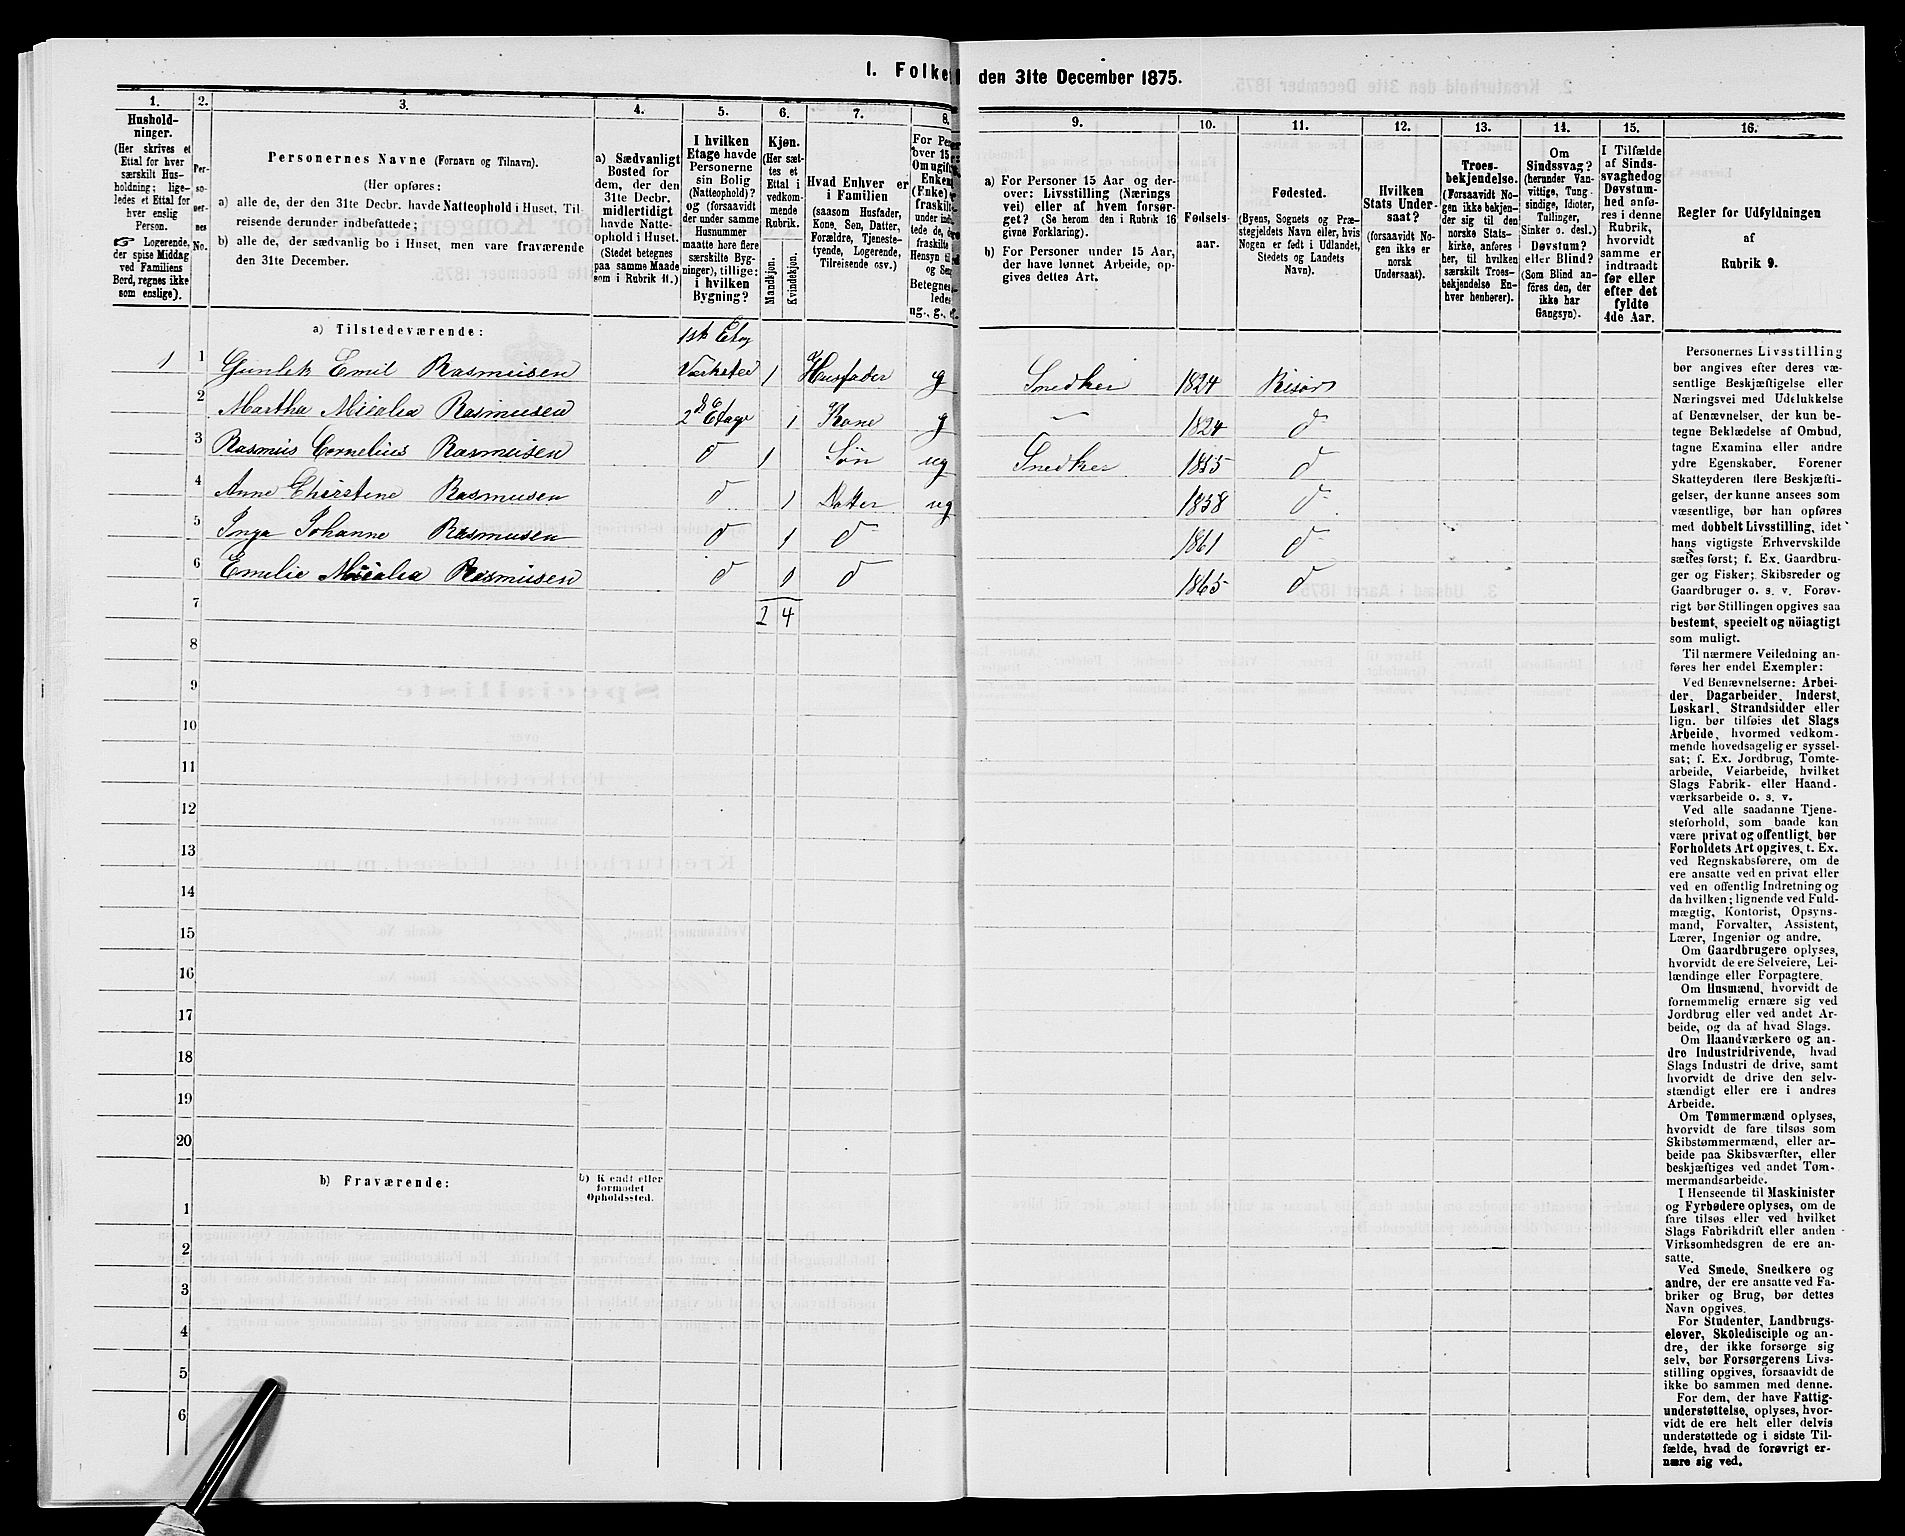 I. Folke
den 31te December 1875.
1.
2.
3.
4.
5.
6.
7.
8.
9.
10.
11.
12.
13.
14.
15.
16.
Hushold-
ninger.
(Her skrives et
Ettal for hver
særskilt Hus-
holdning; lige-
ledes et Ettal for
hver enslig
Person.
☞ Logerende,
der spise Middag
ved Familiens
Bord, regnes ikke
som enslige).
Per-
so-
ner-
nes
No.
Personernes Navne (Fornavn og Tilnavn).
(Her opføres:
a) alle de, der den 31te Decbr. havde Natteophold i Huset, Til-
reisende derunder indbefattede;
b) alle de, der sædvanlig bo i Huset, men vare fraværende
den 31te December.
a) Sædvanligt
Bosted for
dem, der den
31te Decbr.
midlertidigt
havde Natte-
ophold i Huset.
(Stedet betegnes
paa samme Maade
som i Rubrik 11.)
I hvilken
Etage havde
Personerne
sin Bolig
(Natteophold)?
og (forsaavidt
der under samme
Husnummer
maatte høre flere
særskilte Byg-
ninger), tillige:
i hvilken
Bygning?
Kjøn.
(Her sæt-
tes et
Ettal i
vedkom-
mende
Rubrik.
Mandkjøn.
Kvindekjøn.
Hvad Enhver er
i Familien
(saasom Husfader,
Kone, Søn, Datter,
Forældre, Tjeneste-
tyende, Logerende,
Tilreisende osv.)
For Pers
over 15
Om ugift
Enken
(Fnke)
fraskilt
under ind
tede de, de
fraskilte
Hensyn til
og Sen
Betegnes
ledes
ug., g., e.
a) For Personer 15 Aar og der-
over: Livsstilling (Nærings
vei) eller af hvem forsør-
get? (Se herom den i Rubrik 16
givne Forklaring).
b) For Personer under 15 Aar,
der have lønnet Arbeide, op-
gives dettes Art.
Fødsels-
aar.
Fødested.
(Byens, Sognets og Præ-
stegjeldets Navn eller, hvis
Nogen er født i Udlandet,
Stedets og Landets
Navn).
Hvilken
Stats Under-
saat?
(forsaavidt No-
gen ikke er
norsk
Undersaat).
Troes-
bekjendelse.
(Forsaavidt No-
gen ikke bekjen-
der sig til den
norske Stats-
kirke, anføres
her, til hvilken
særskilt Troes-
bekjendelse En-
hver henhører).
Om
Sindssvag?
(herunder Van-
vittige, Tung-
sindige, Idioter,
Tullinger,
Sinker o. desl.)
Døvstum?
eller Blind?
(Som Blind an-
föres den, der
ikke har
Gangsyn).
I Tilfælde
af Sinds-
svaghed og
Døvstum-
hed anfø-
res i denne
Rubrik,
hvorvidt
samme er
indtraadt
før eller
efter det
fyldte
4de Aar.
Regler for Udfyldningen
af
Rubrik 9.
a) Tilstedeværende:
1ste Etag
1 1 Gunlek Emil Rasmusen Værksted 1 Husfader g Snedker 1824 Risør
2 Martha Micalea Rasmusen 2d Etage 1 Kone g 1824 d
3 Rasmus Cornelius Rasmusen d 1 Søn ug Snedker 1855 d
4 Anne Christine Rasmusen d 1 Datter ug 1858 d
5 Inga Johanne Rasmusen d 1 d 1861 d
6 Emelie Micalea Rasmusen d 1 d 1865 d
7 2 4
8
9
10
11
12
13
14
15
16
17
18
19
20
b) Fraværende:
b) Kjendt eller
formodet
Opholdssted.
1
2
3
4
5
6
Personernes Livsstilling
bør angives efter deres væ-
sentlige Beskjæftigelse eller
Næringsvei med Udelukkelse
af Benævnelser, der kun be-
tegne Beklædelse af Ombud,
tagne Examina eller andre
ydre Egenskaber. Forener
Skatteyderen flere Beskjæfti-
gelser, der kunne ansees som
væsentlige, bør han opføres
med dobbelt Livsstilling, idet
hans vigtigste Erhvervskilde
sættes først; f. Ex. Gaardbru-
ger og Fisker; Skibsreder og
Gaardbruger o. s. v. Forøv-
rigt bør Stillingen opgives saa
bestemt, specielt og nöiagtigt
som muligt.
Til nærmere Veiledning an-
føres her endel Exempler:
Ved Benævnelserne: Arbei-
der, Dagarbeider, Inderst,
Løskarl, Strandsidder eller
lign. bør tilføies det Slags
Arbeide, hvormed vedkom-
mende hovedsagelig er syssel-
sat; f. Ex. Jordbrug, Tomte-
arbeide, Veiarbeide, hvilket
Slags Fabrik- eller Haand-
værksarbeide o. s. v.
Ved alle saadanne Tjene-
steforhold, som baade kan
være privat og offentligt, bør
Forholdets Art opgives, f. Ex.
ved Regnskabsførere, om de
ere ansatte ved en privat eller
ved en offentlig Indretning og
da hvilken; lignende ved Fuld-
mægtig, Kontorist, Opsyns-
mand, Forvalter, Assistent,
Lærer, Ingeniør og andre.
Om Gaardbrugere oplyses,
hvorvidt de ere Selveiere, Lei-
lændinge eller Forpagtere.
Om Husmænd, hvorvidt de
fornemmelig ernære sig ved
Jordbrug eller ved andet Ar-
beide, og da af hvad Slags.
Om Haandværkere og an-
dre Industridrivende, hvad
Slags Industri de drive, samt
hvorvidt de drive den selv-
stændigt eller ere i andres
Arbeide.
Om Tømmermænd oplyses,
hvorvidt de fare tilsøs som
Skibstømmermænd, eller ar-
beide paa Skibsværfter, eller
beskjæftiges ved andet Tøm-
mermandsarbeide.
I Henseende til Maskinister
og Fyrbødere oplyses, om de
fare tilsøs eller ved hvilket
Slags Fabrikdrift eller anden
Virksomhedsgren de ere an-
satte.
Ved Smede, Snedkere og
andre, der ere ansatte ved Fa-
briker og Brug, bør dettes
Navn opgives.
For Studenter, Landbrugs-
elever, Skoledisciple og an-
dre, der ikke forsørge sig
selv, bør Forsørgerens Livs-
stilling opgives, forsaavidt de
ikke bo sammen med denne.
For dem, der have Fattig-
understøttelse, oplyses, hvor-
vidt de ere helt eller delvis
understøttede og i sidste Til-
fælde, hvad de forøvrigt er-
nære sig ved.